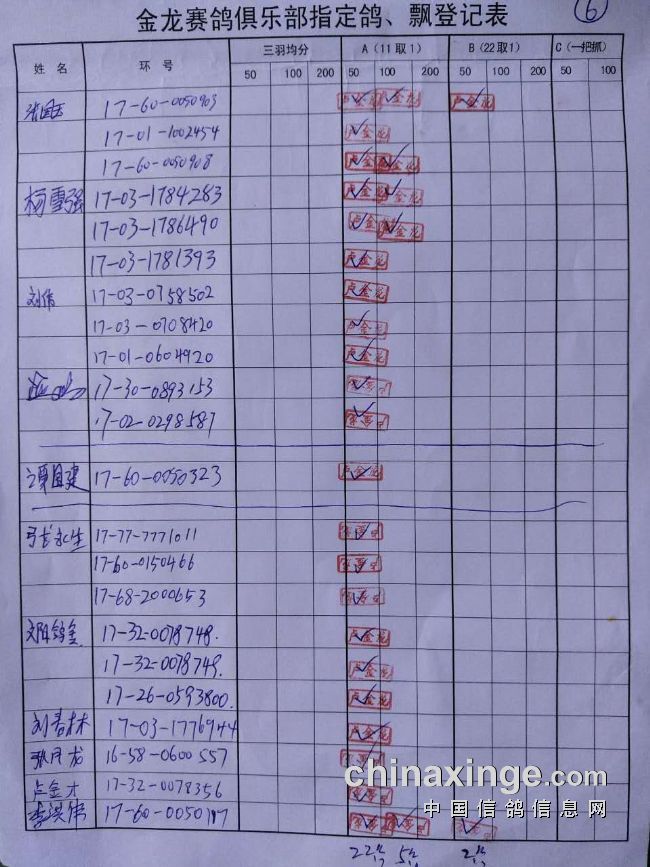 金龙赛鸽俱乐部指定鸽、飘登记表
6
姓名 环号 三羽均分 A（11取1） B（22取1） C（一把抓）
50 100 200 50 100 200 50 100 200 50 100
17-60-0050903 卢金龙 卢金龙 卢金龙
17-01-1002454 卢金龙
17-60-0050908 卢金龙 卢金龙
杨雪强 17-03-1784283 卢金龙 卢金龙
17-03-1786490 卢金龙 卢金龙
17-03-1781393 卢金龙
刘伟 17-03-0758502 卢金龙
17-03-0708420 卢金龙
17-01-0604920 卢金龙
17-30-0893153
17-02-0298587
谭国建 17-60-0050323 卢金龙
张永生 17-77-7771011
17-60-0150466
17-68-2000653
17-32-0078748. 卢金龙
17-32-0078749. 卢金龙
17-26-0593800. 卢金龙
刘春林 17-03-1776944 卢金龙
张凤龙 16-58-0600557
卢金才 17-32-0078356
李洪伟 17-60-0050187
22个 5个 2个
chinaxinge.com
中国信鸽信息网